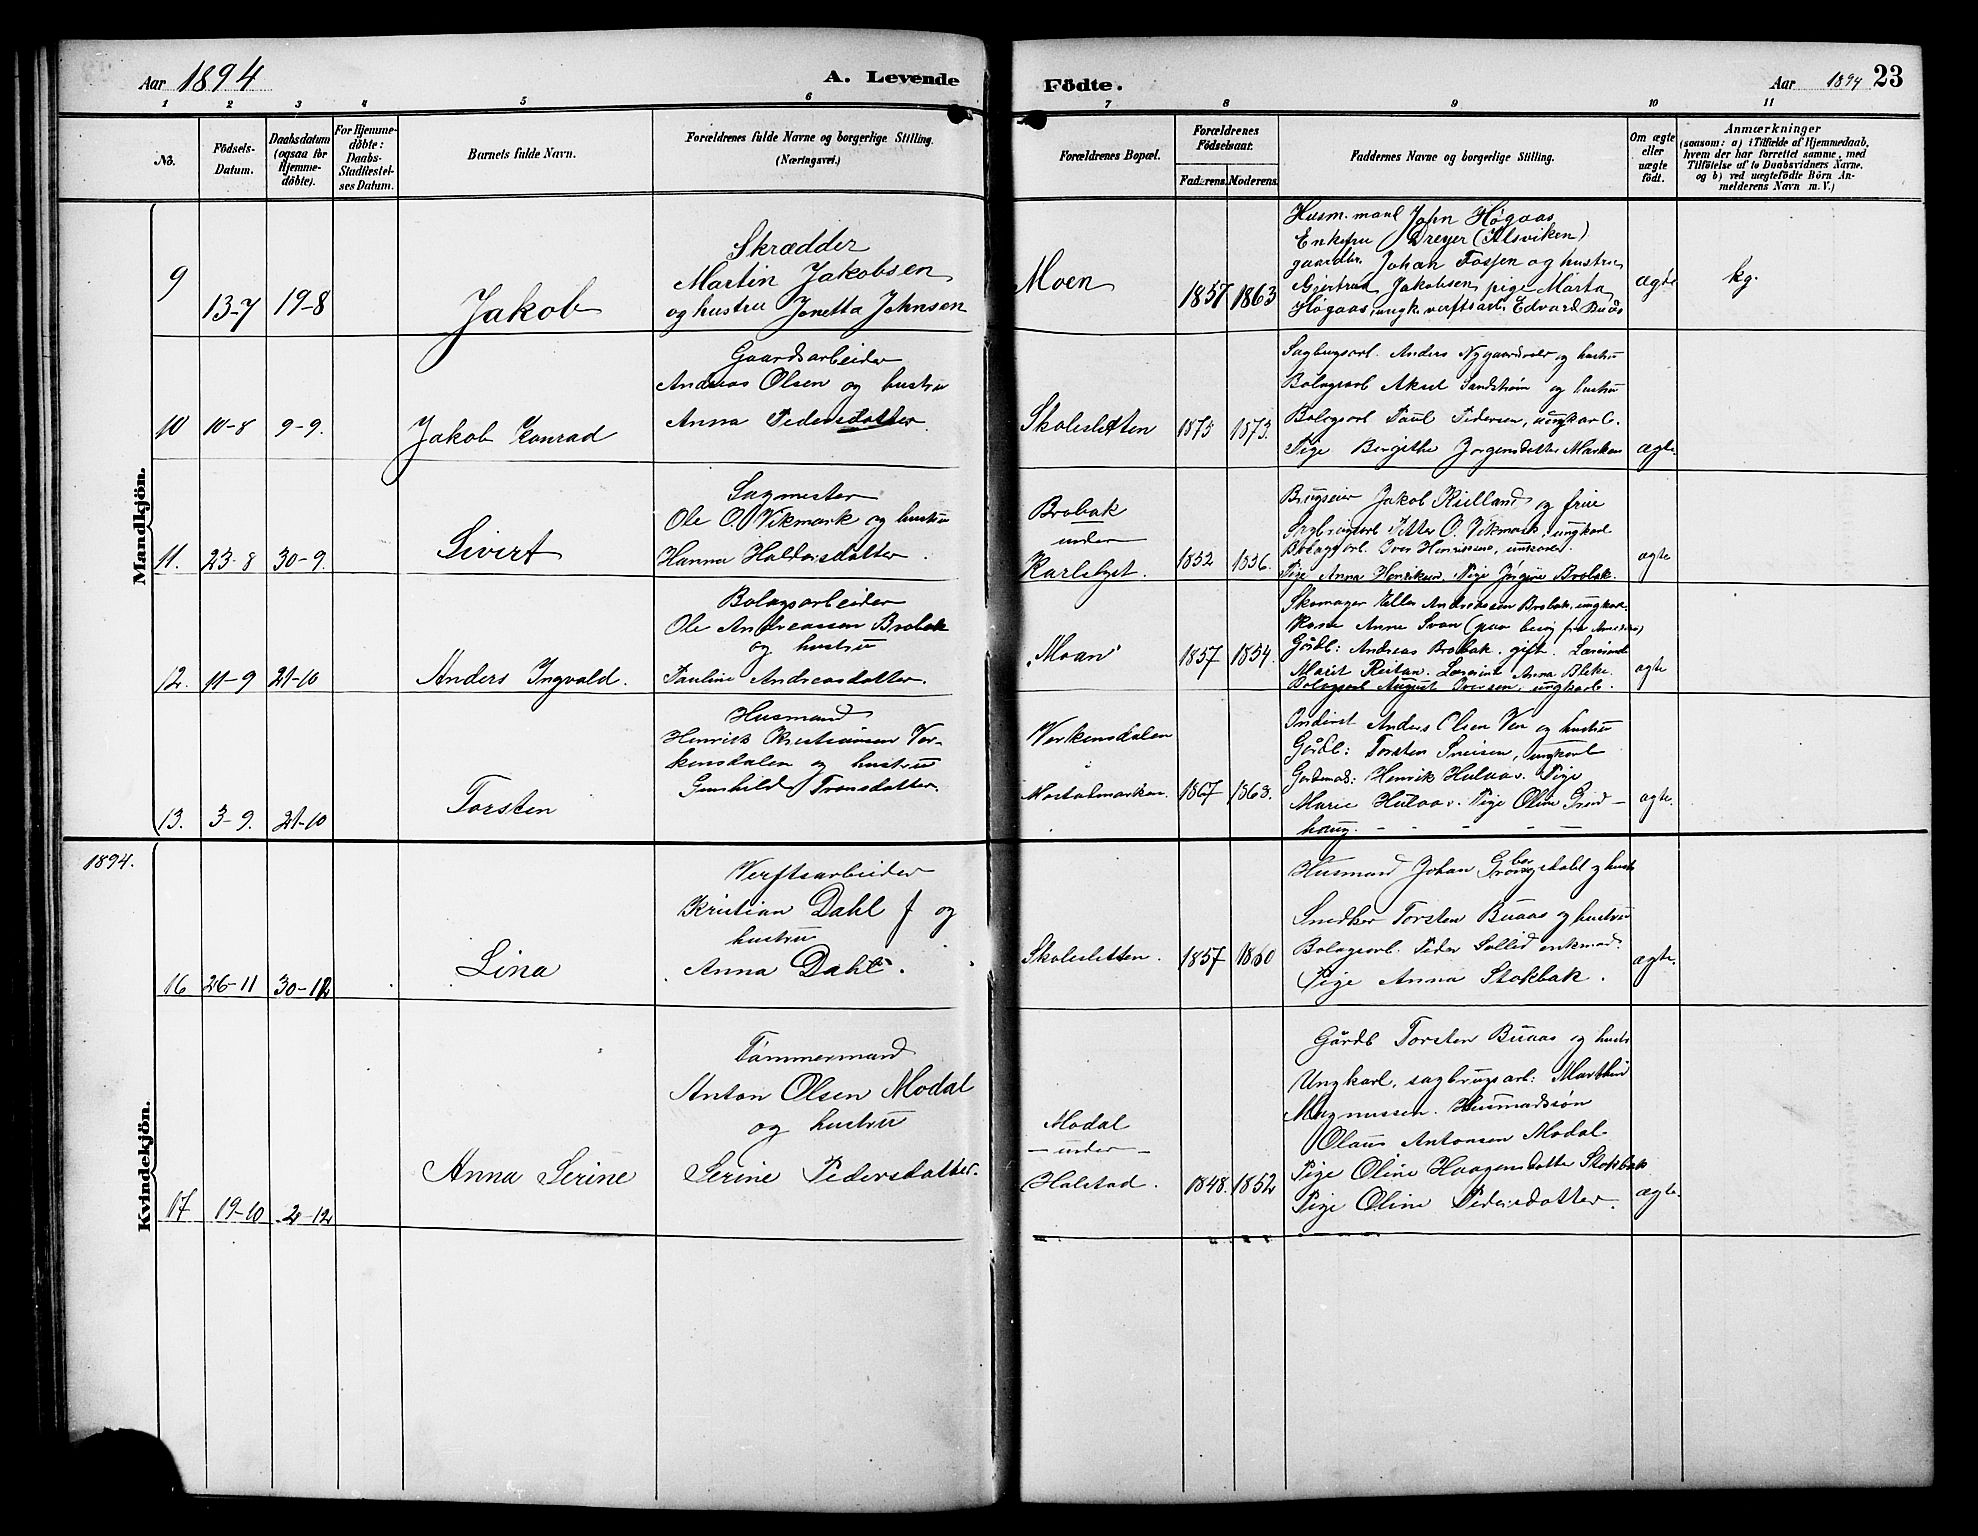 Aar 1894
A. Levende
Födte.
Aar 1894
23
1 2 3 4 5 6 7 8 9 10 11
No.
Födsels-
Datum.
Daabsdatum
(ogsaa for
Hjemme-
döbte).
For Hjemme-
döbte:
Daabs-
Stadfestel-
ses Datum.
Barnets fulde Navn.
Forældrenes fulde Navne og borgerlige Stilling.
(Næringsvei.)
Forældrenes Bopæl.
Forældrenes
Födselsaar.
Faderens. Moderens.
Faddernes Navne og borgerlige Stilling.
Om ægte
eller
uægte
födt.
Anmærkninger
(saasom: a) i Tilfælde af Hjemmedaab,
hvem der har forrettet samme, med
Tilföielse af to Daabsvidners Navne,
og b) ved uegtefödte Börn An-
melderens Navn m. V.)
Mandkjön.
9
13-7
19-8
Jakob
Skrædder
Martin Jakobsen
og hustru Jonetta Johnsen
Moen
1857
1863
Husm. mand John Høgaas
Enkefru Dreyer (Ilsviken)
gaardbr. Johan Fossen og hustru
Gjertrud Jakobsen, pige Marta
Høgaas, ungk. verftsarb. Edvard Buås
ægte
kg.
10
10-8
9-9.
Jakob Konrad
Gaardsarbeider
Andreas Olsen og hustru
Anna Pedersdatter.
Skolesletten
1873
1873.
Sagbrugsarb. Anders og hustru
Bolagsarb Aksel Sandstrøm og hustru
Bolagsarb Paul Pedersen, ungkarl.
Pige Bergithe Jørgensdatter Marken
ægte.
11.
23-8
30-9.
Sivert
Sagmester
Ole O. Vikmark og hustru
Hanna Haldorsdatter.
Brobak
under
Karlslyst.
1852
1856.
Brugseier Jakob Kielland og frue
Sagbrugsarb Petter O. Vikmark, ungkarl
Bolagsarb. Iver Henriksen, ungkarl.
Pige Anna Henriksen, Pige Jørgine Brobak.
ægte
12.
11-9
21-10
Anders Ingvald.
Bolagsarbeider
Ole Andreassen Brobak
og hustru
Pauline Andreasdatter.
"Moan"
1857
1854.
Skomager Andreassen Brobak, ungkar.
Kone Anne Svan (paa besøg fra Amerika)
Gårdb: Andreas Brobak, gift. Lærerinde
Marit Reitan. Lærerint Anna Bleke.
Bolagsarb August Iversen, ungkarl.
ægte
13.
3-9.
21-10
Torsten
Husmand
Henrik Kristiansen Ver-
kensdalen og hustru
Gunhild Tronsdatter.
Verkensdalen
i
Mostadmarken.
1867
1863.
Inderst Anders Olsen Ven og hustru
Gårdb: Torsten Sneisen, ungkarl
Gardmad: Henrik Hulaas. Pige
Marie Hulaas. Pige Oline Grønd-
haug. - - - - -
ægte.
1894.
Kvindekjön.
16
26-11
30-12
Lina
Verftsarbeider
Kristian Dahl f og
hustru
Anna Dahl.
Skolesletten.
1857
1860
Husmand Johan Grønberg og hustr
Snedker Torsten Buaas og hustru
Bolagsarb. Peder Sollid enkmad.
Pige Anna Stokbak.
ægte.
17
19-10
2-12
Anna Serine
Tømmermand
Anton Olsen Modal
og hustru
Serine Pedersdatter.
Modal
- under -
Halstad.
1848.
1852
Gårdb Torsten Buaas og hustr
Ungkarl, sagbrugsarb: Marthin
Magnussen. Husmadssøn
Olaus Antonsen Modal.
Pige Oline Haagensdatter Stokbak
Pige Oline Pedersdatter.
ægte.